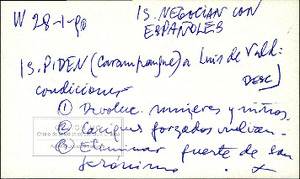 W 28-1-90
IS. NEGOCIAN CON
ESPAÑOLES
IS. PIDEN (Carampangue) a Luis de Vald:
DESC)
condiciones
① Devoluc. mujeres y niños.
② Caciques forzados vuelvan.
③ Eliminar fuerte de San
Jerónimo